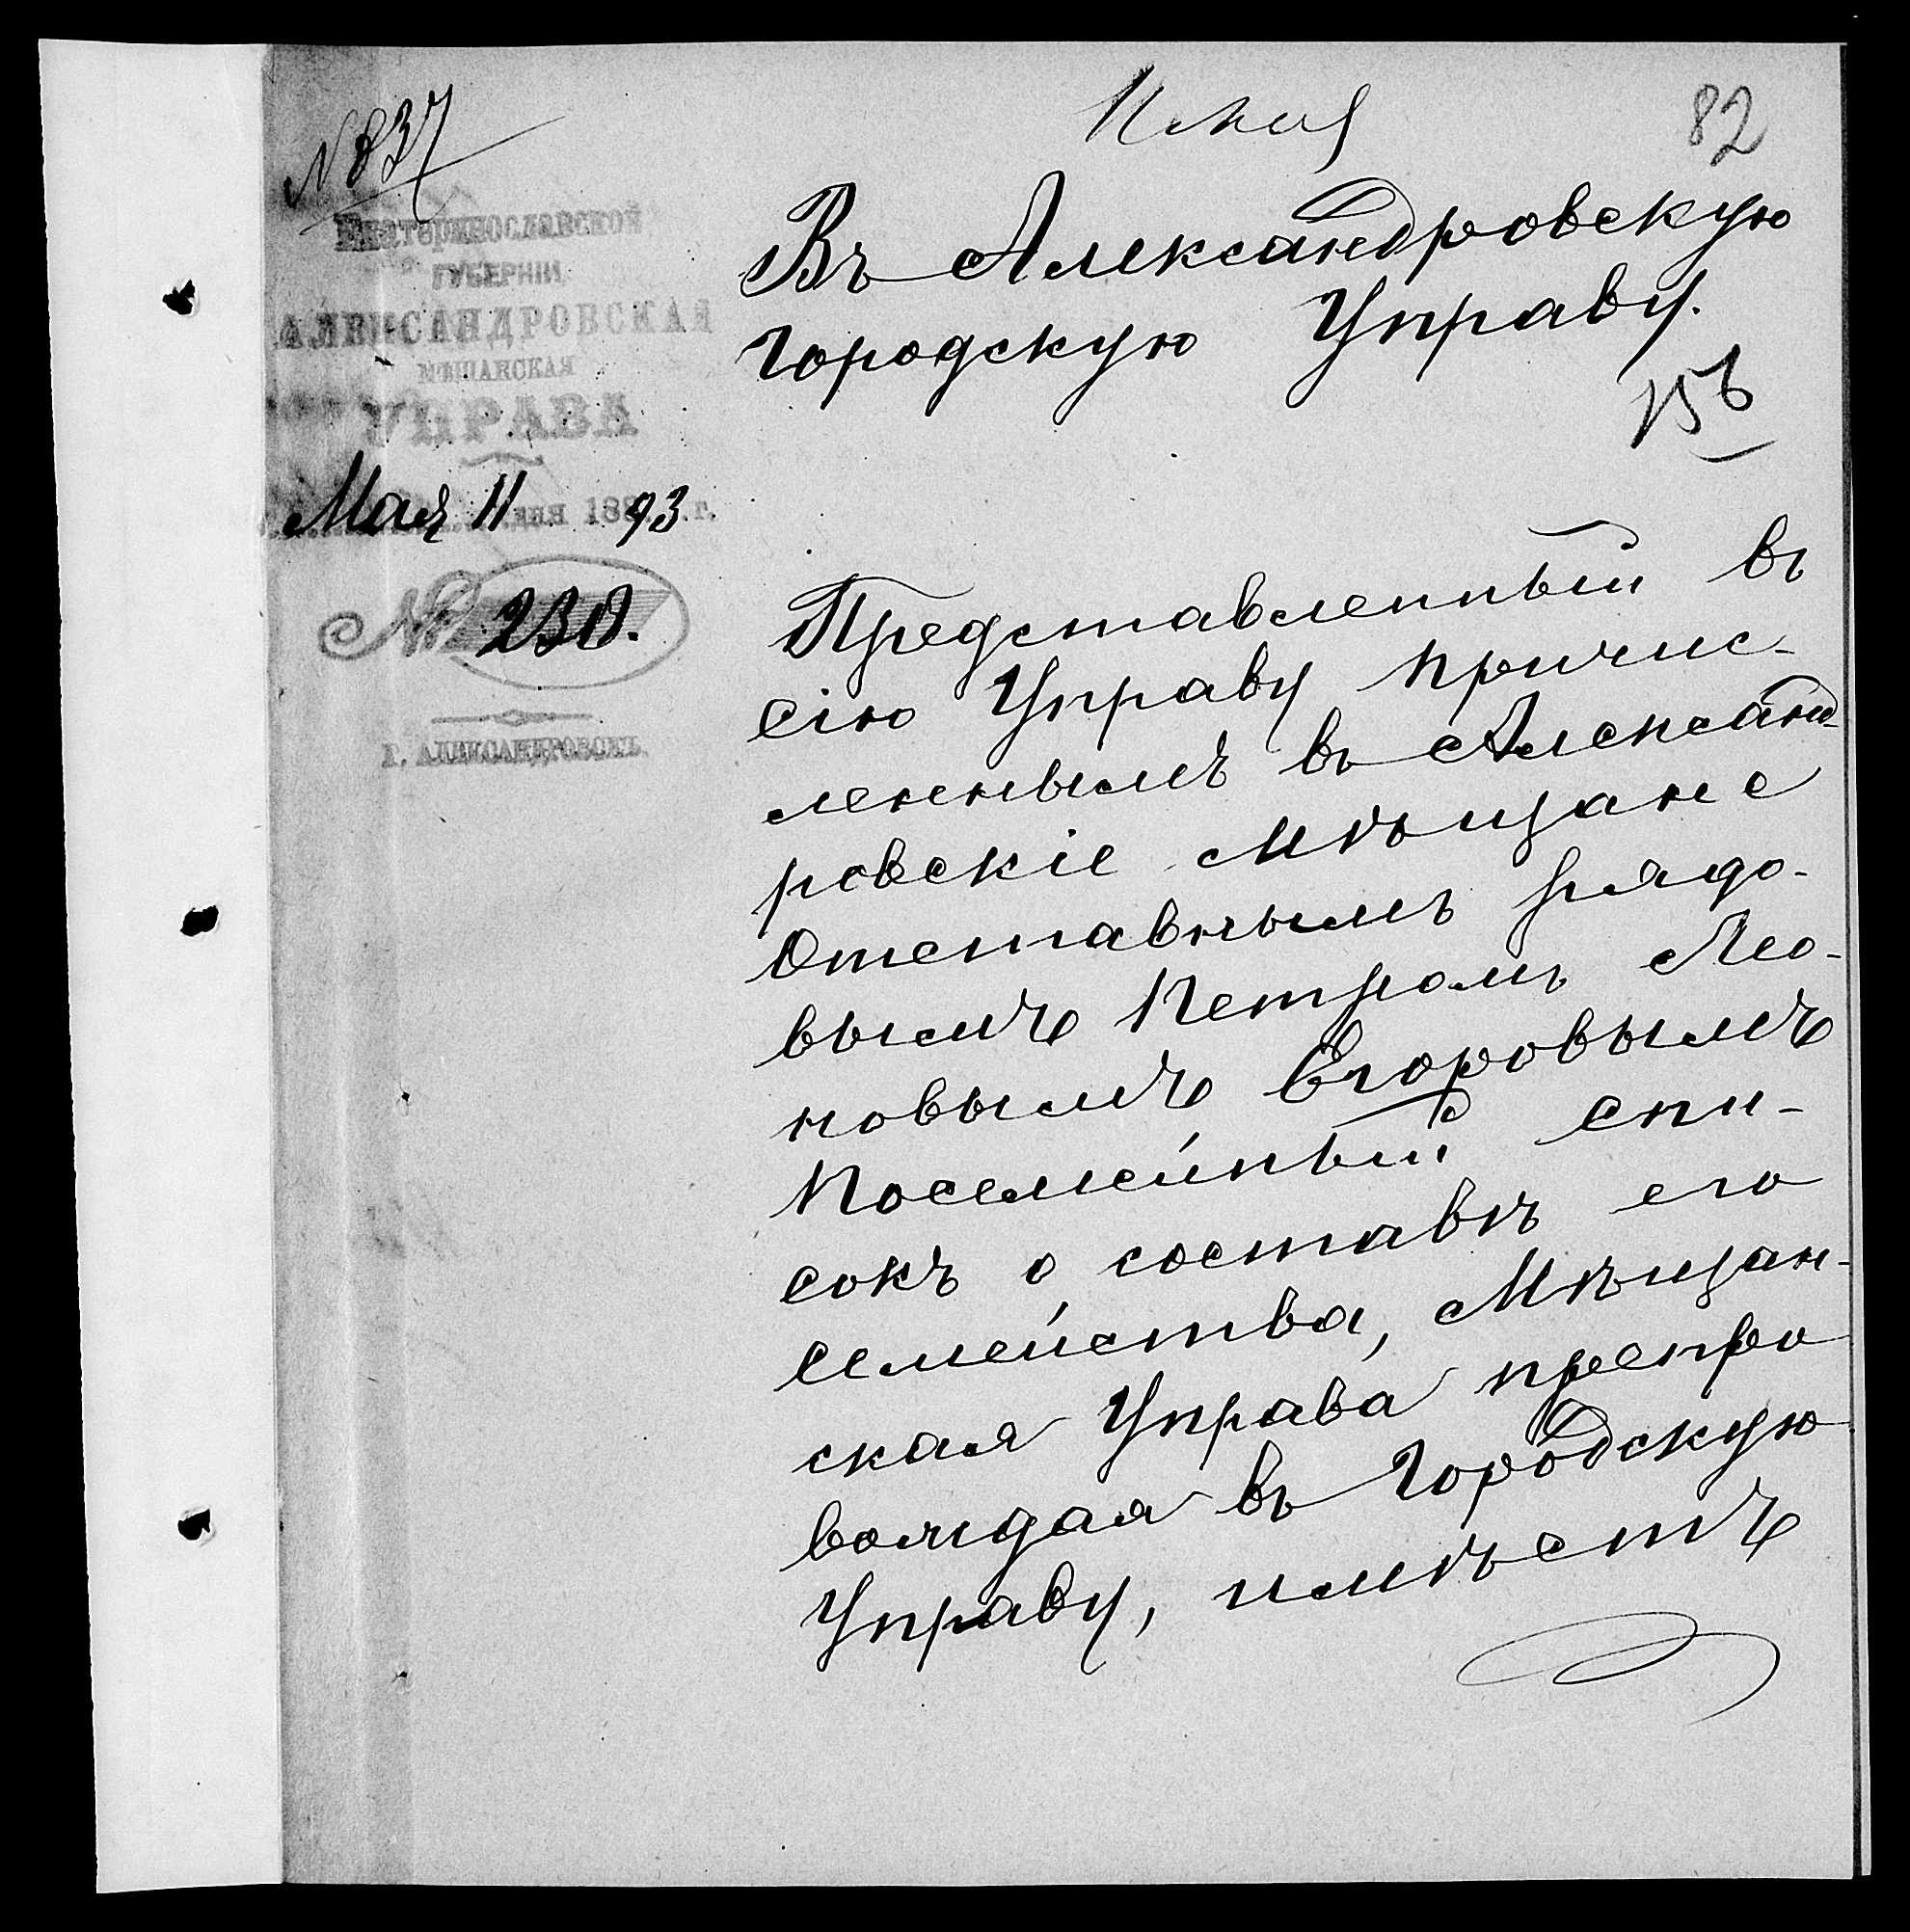 11 мая
82
№ 837
Екатеринославской
ГУБЕРНІИ
АЛЕКСАНДРОВСКАЯ
МѢЩАНСКАЯ
УПРАВА
Мая 11 дня 1893 г.
№ 230.
Г. АЛЕКСАНДРОВСКЪ.
Въ Александровскую
Городскую Управу.
156
Представленный въ
сію Управу причис-
леннымъ въ Александ-
ровскіе Мѣщане
Отставнымъ рядо-
вымъ Петромъ Лео-
новымъ Егоровымъ
Посемейный спи-
сокъ о составѣ его
семейства, Мѣщан-
ская Управа препро
вождая въ Городскую
Управу, имѣетъ